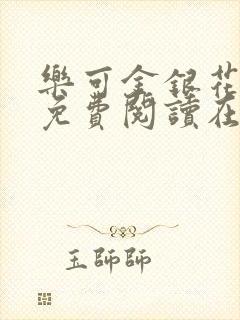 樂可金銀花
免費閱讀在
玉師師